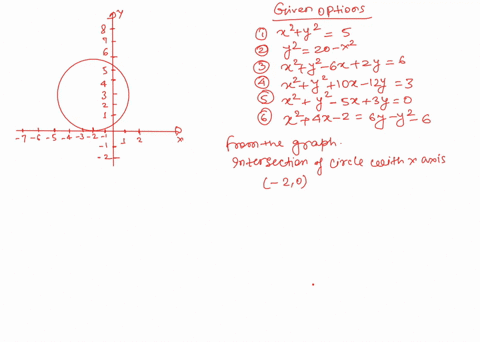 Given options
① x²+y² = 5
② y² = 20-x²
③ x²+y²-6x+2y = 6
④ x²+y²+10x-12y = 3
⑤ x²+y²-5x+3y = 0
⑥ x²+4x-2 = 6y-y²-6
from the graph.
Intersection of circle with x axis
(-2,0)
y
8
7
6
5
4
3
2
1
-7 -6 -5 -4 -3 -2 -1 1 2 x
-1
-2